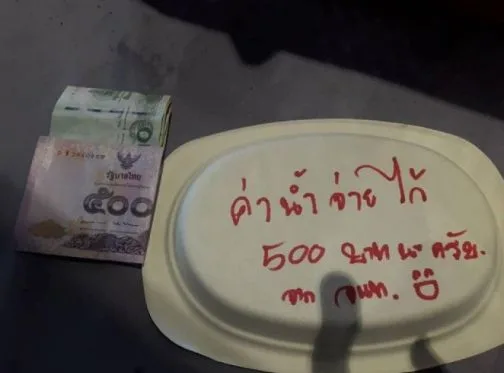 รัฐบาลไทย
๕๐๐
ค่าน้ำจ่ายไก้
500 บาท นะ ครับ.
จาก จนท.